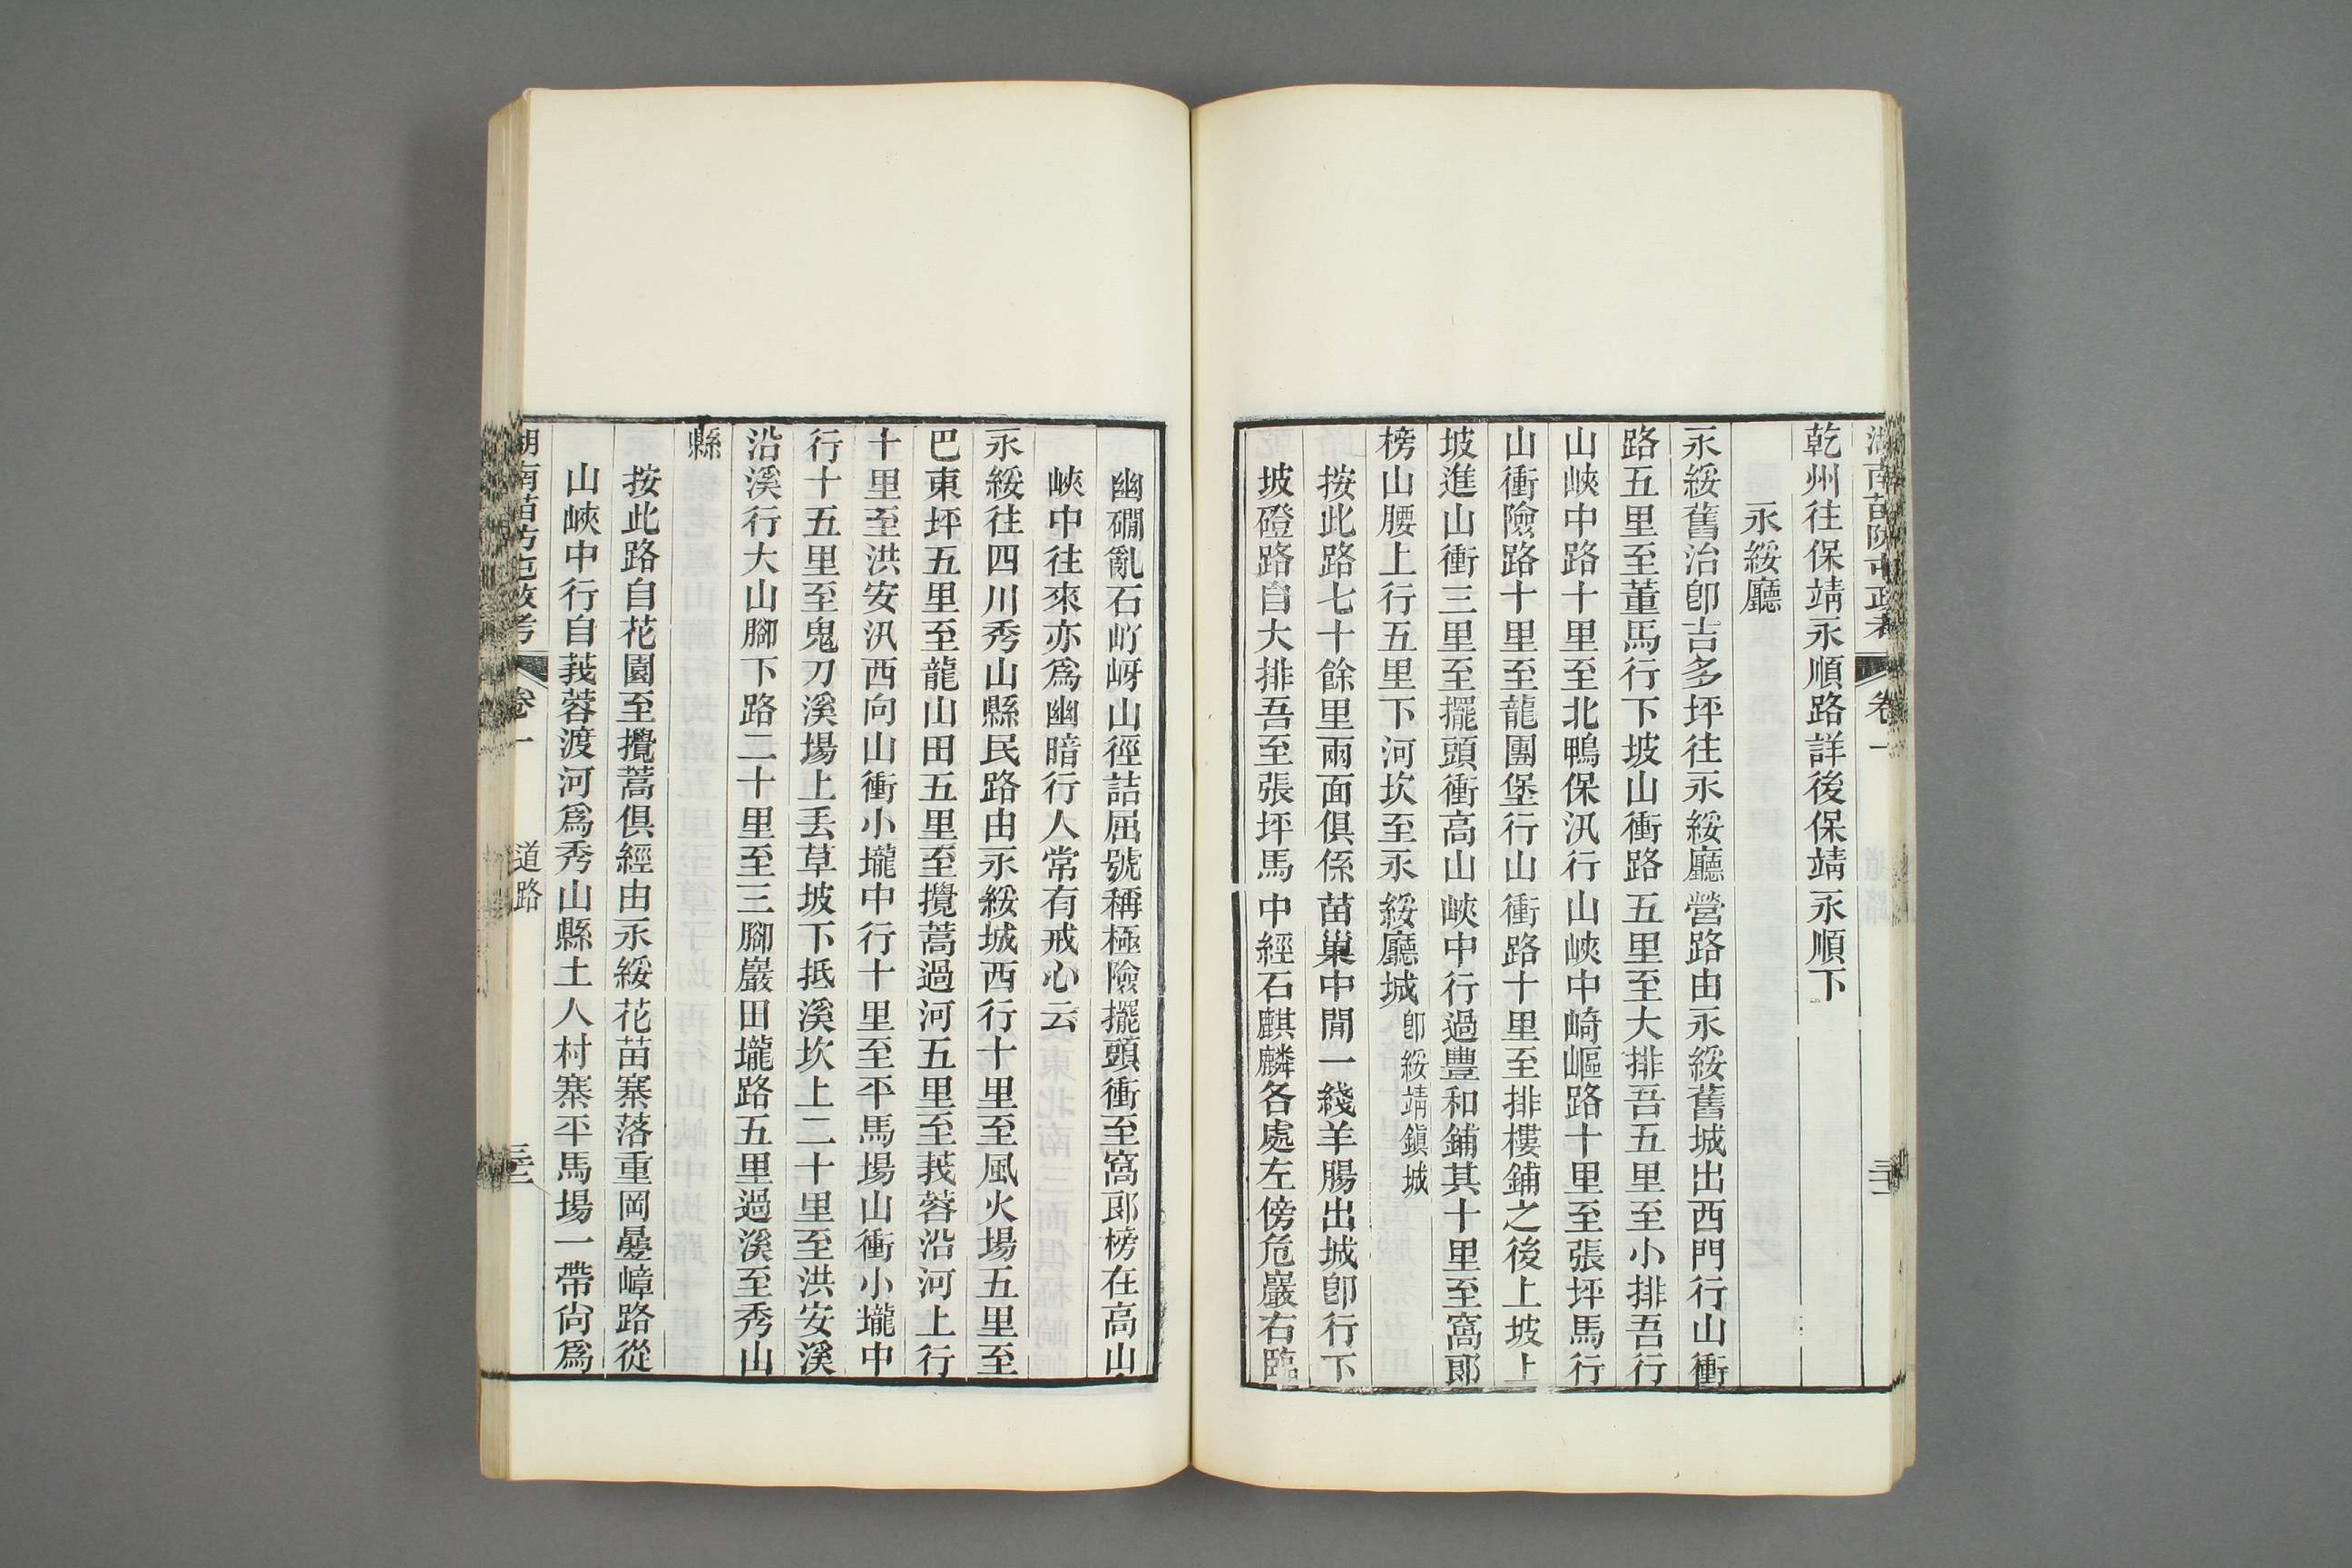 湖南苗防屯政考 卷一 道路
乾州往保靖永順路詳後保靖永順下
永綏廳
永綏舊治卽吉多坪往永綏廳營路由永綏舊城出西門行山衝
路五里至董馬行下坡山衝路五里至大排吾五里至小排吾行
山峽中路十里至北鴨保汛行山峽中崎嶇路十里至張坪馬行
山衝險路十里至龍團堡行山衝路十里至排樓鋪之後上坡上
坡進山衝三里至擺頭衝高山峽中行過豐和鋪其十里至窩郎
榜山腰上行五里下河坎至永綏廳城卽綏靖鎭城
按此路七十餘里兩面俱係苗巢中閒一綫羊腸出城卽行下
坡磴路自大排吾至張坪馬中經石麒麟各處左傍危巖右臨
幽磵亂石岝岈山徑詰屈號稱極險擺頭衝至窩郎榜在高山
峽中往來亦爲幽暗行人常有戒心云
永綏往四川秀山縣民路由永綏城西行十里至風火場五里至
巴東坪五里至龍山田五里至攪蒿過河五里至茙蓉沿河上行
十里至洪安汛西向山衝小壠中行十里至平馬場山衝小壠中
行十五里至鬼刀溪場上丟草坡下抵溪坎上二十里至洪安溪
沿溪行大山腳下路二十里至三腳巖田壠路五里過溪至秀山
縣
按此路自花園至攪蒿俱經由永綏花苗寨落重岡曡嶂路從
山峽中行自茙蓉渡河爲秀山縣土人村寨平馬場一帶尙爲
湖南苗防屯政考 卷一 道路